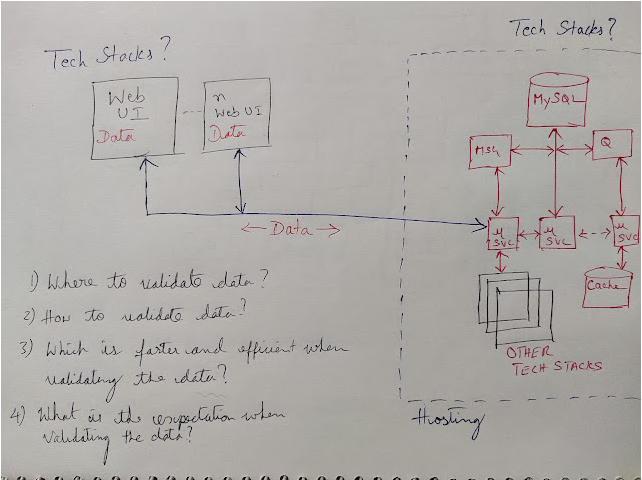 Tech Stacks?
Tech Stacks?
Web
UI
Data
n
Web UI
Data
MySQL
MSG
Q
← Data →
μ
SVC
μ
SVC
μ
SVC
Cache
OTHER
TECH STACKS
Hosting
1) Where to validate data?
2) How to validate data?
3) Which is faster and efficient when
validating the data?
4) What is the expectation when
validating the data?